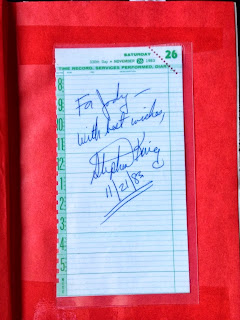 SATURDAY 26
330th Day • NOVEMBER 26 1983
TIME RECORD, SERVICES PERFORMED, DIARY
8 For Jody –
9 with best wishes,
10
11 Stephen King
12 11/21/83
1
2
3
4
5